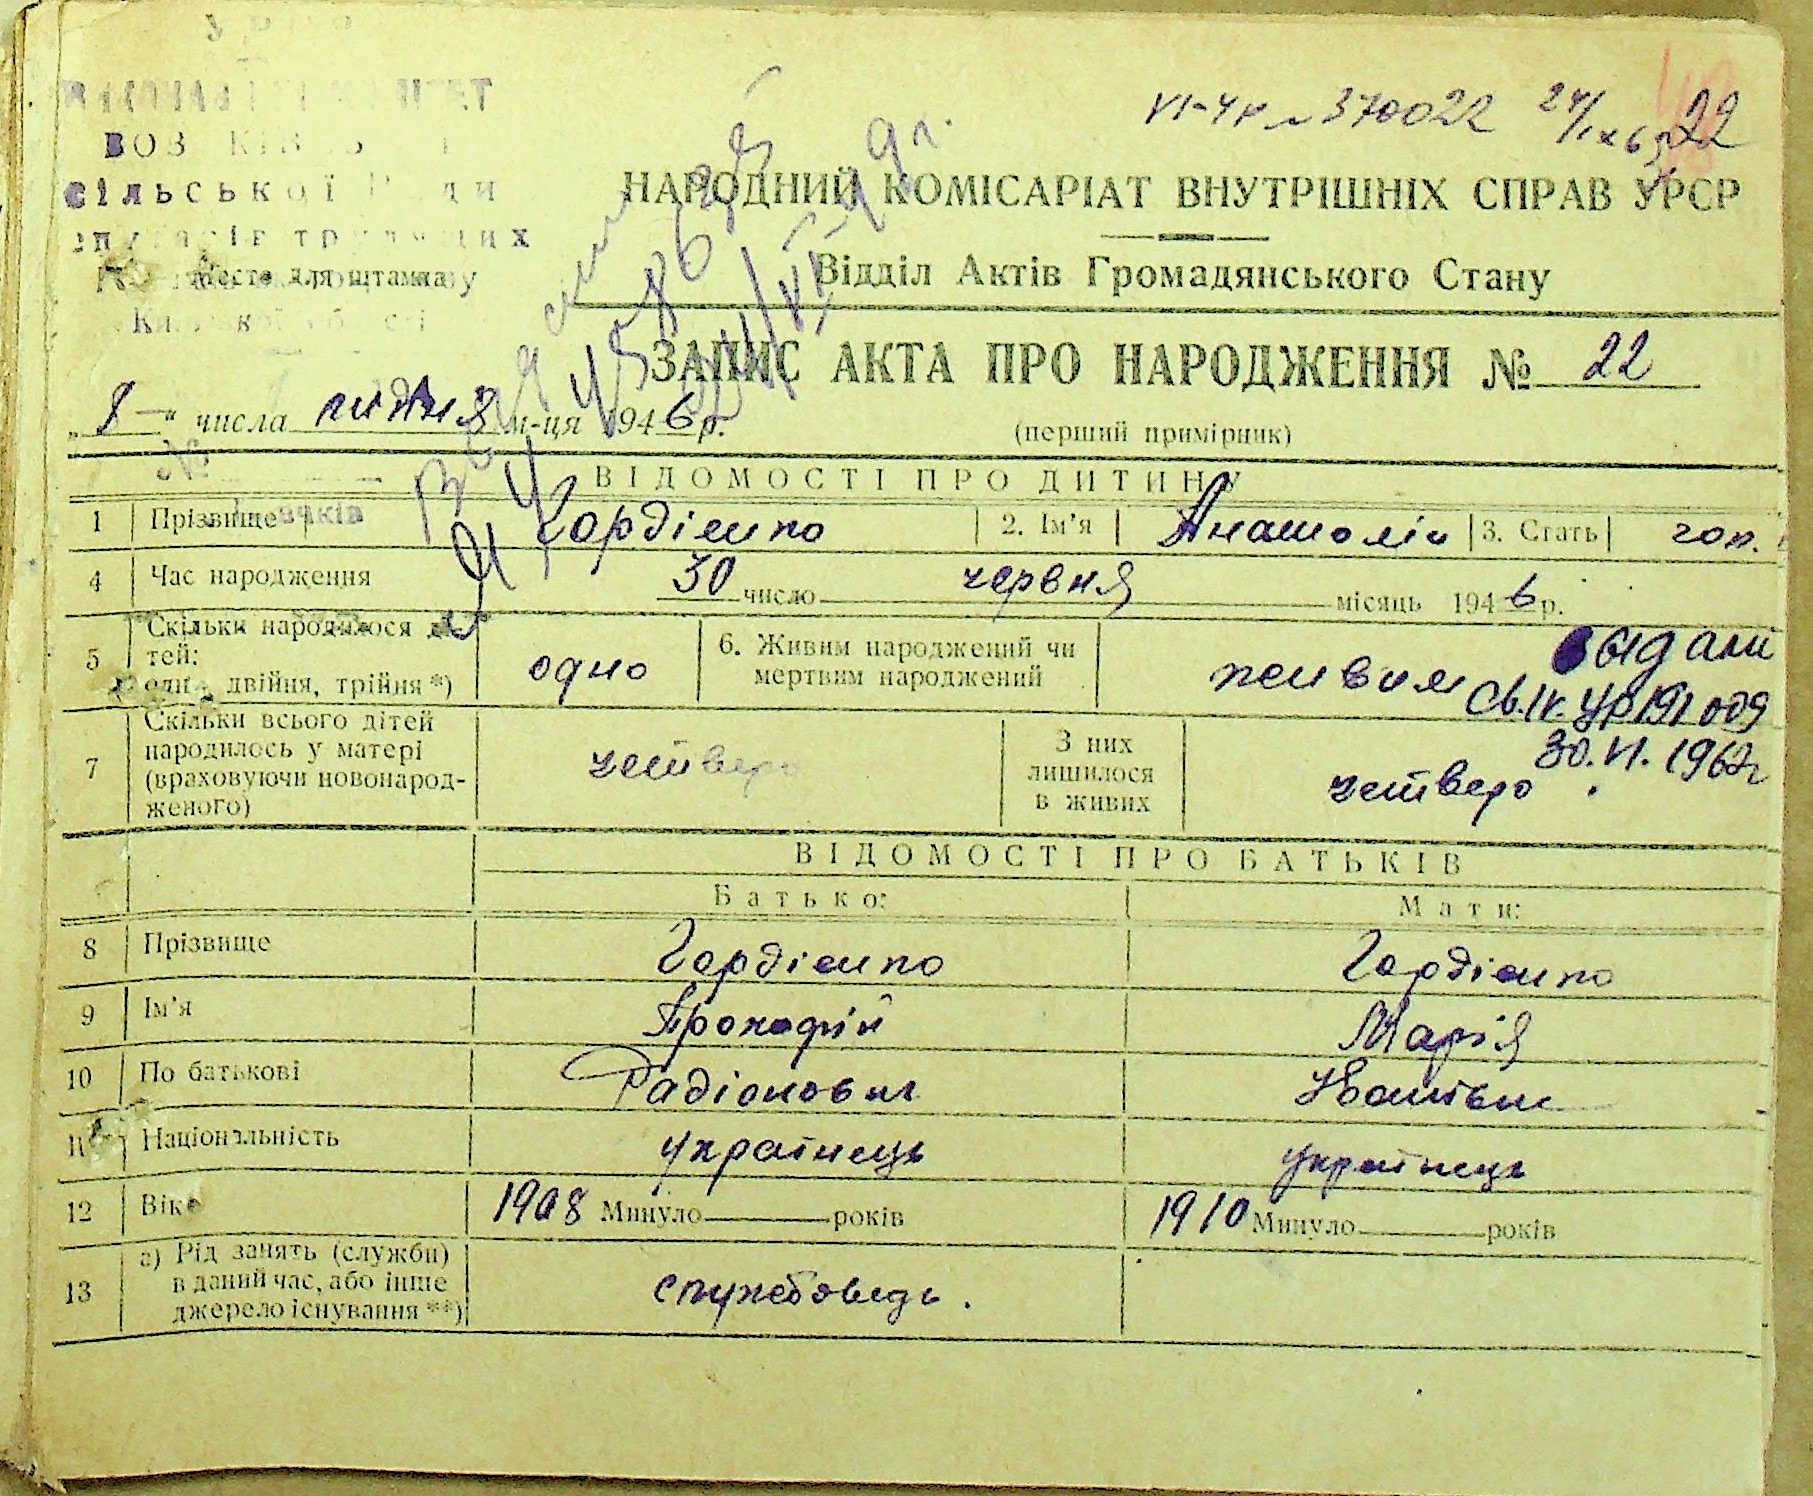 сільської
Место для штампу
22
НАРОДНИЙ КОМІСАРІАТ ВНУТРІШНІХ СПРАВ УРСР
Відділ Актів Громадянського Стану
ЗАПИС АКТА ПРО НАРОДЖЕННЯ № 22
„8“ числа липня м-ця 1946 р.
(перший примірник)
ВІДОМОСТІ ПРО ДИТИНУ
1 Прізвище Гордієнко 2. Ім'я Анатолій 3. Стать чол.
4 Час народження 30 число червня місяць 1946 р.
5 Скільки народилося дітей: одно, двійня, трійня *) одно 6. Живим народжений чи мертвим народжений живим
видали
30.VI.1962г
7 Скільки всього дітей народилось у матері (враховуючи новонародженого) четверо З них лишилося в живих четверо
ВІДОМОСТІ ПРО БАТЬКІВ
Батько: Мати:
8 Прізвище Гордієнко Гордієнко
9 Ім'я Прокофій Марія
10 По батькові Радіонович
11 Національність українець українець
12 Вік 1908 Минуло років 1910 Минуло років
13 а) Рід занять (служби) в даний час, або інше джерело існування **) службовець.